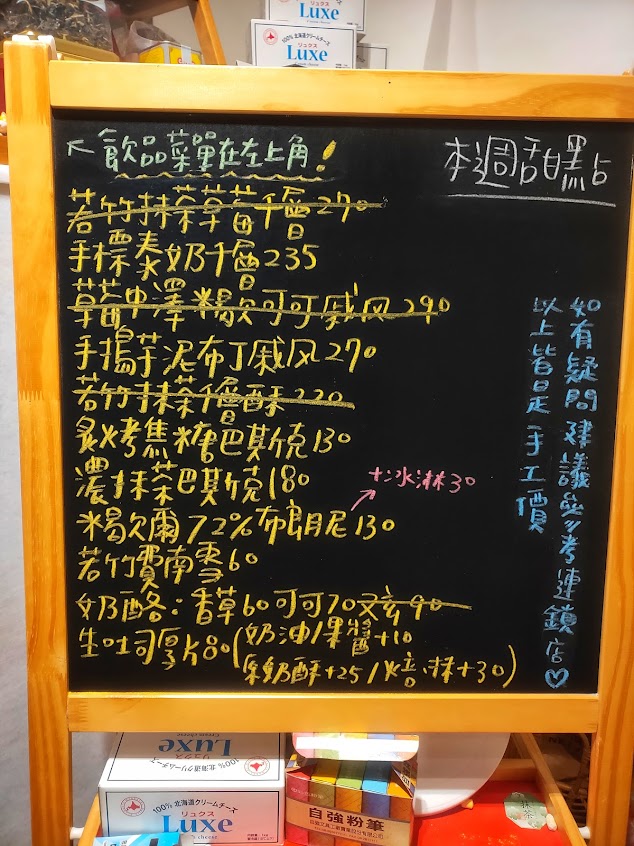 リュクス
Luxe
100% 北海道クリームチーズ
リュクス
Luxe
Cream cheese
↖飲品菜單在左上角!
本週甜點
若竹抹茶草莓千層270
手標泰奶千層235
草莓中澤米歇可可戚风290
手搗芋泥布丁戚风270
若竹抹茶千層酥220
炙烤焦糖巴斯克130
濃抹茶巴斯克180
+冰淋30
米歇爾72%布朗尼130
若竹費南雪60
奶酪:香草60可可70玄90
生吐司厚片80(奶油/果醬+10
奶酥+25/焙.抹+30)
如有疑問建議參考連鎖店♡
以上皆是手工價
Luxe
Cream cheese
100% 北海道クリームチーズ
100% 北海道クリームチーズ
リュクス
Luxe
Cream cheese
自強粉筆
抹茶